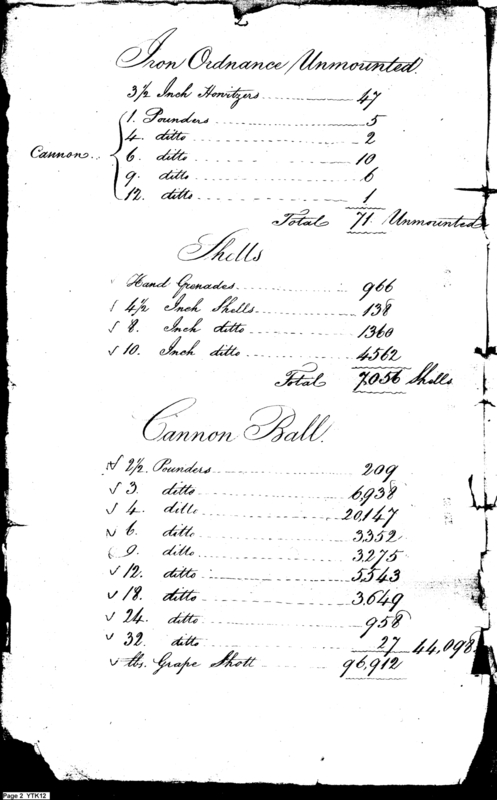 2
Iron Ordnance Unmounted.
3½ Inch Howitzers 47
1. Pounders 5
4. ditto 2
Cannon 6. ditto 10
9. ditto 6
12. ditto 1
Total 71 Unmounted
Shells
Hand Grenades 966
4½ Inch Shells 138
8. Inch ditto 1360
10. Inch ditto 4562
Total 7,056 Shells
Cannon Ball.
2½. Pounders 209
3. ditto 6,938
4. ditto 20,147
6. ditto 3,352
9. ditto 3,275
12. ditto 5,543
18. ditto 3,649
24. ditto 958
32. ditto 27 44,098
lbs. Grape Shott 96,912
Page 2 YTK12